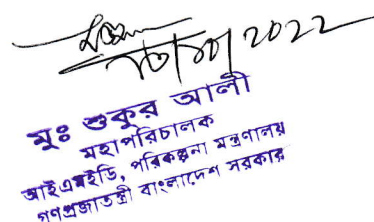 ২০২২
মুঃ শুকুর আলী
মহাপরিচালক
আইএমইডি, পরিকল্পনা মন্ত্রণালয়
গণপ্রজাতন্ত্রী বাংলাদেশ সরকার